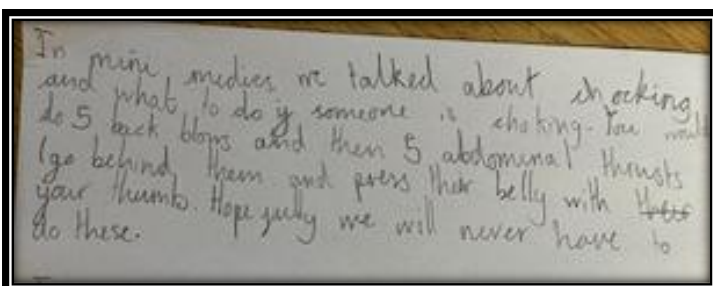 In mini medics we talked about chocking
and what to do if someone is choking. You would
do 5 back blows and then 5 abdominal thrusts
(go behind them and press their belly with
your thumb. Hopefully we will never have to
do these.